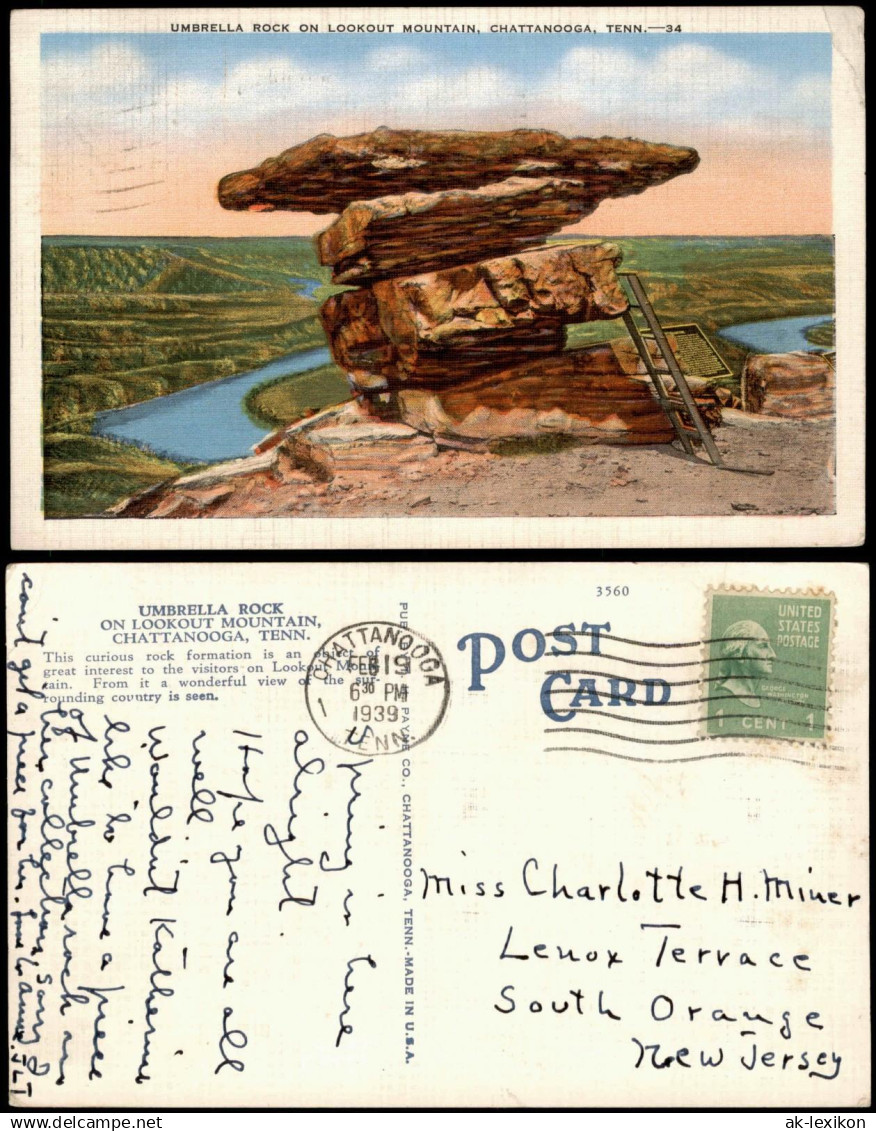 UMBRELLA ROCK ON LOOKOUT MOUNTAIN, CHATTANOOGA, TENN.—34
UMBRELLA ROCK
ON LOOKOUT MOUNTAIN,
CHATTANOOGA, TENN.
This curious rock formation is an object of
great interest to the visitors on Lookout Moun-
tain. From it a wonderful view of the sur-
rounding country is seen.
CHATTANOOGA
FEB 19
6 30 PM
1939
TENN.
1
PAYNE CO., CHATTANOOGA, TENN.-MADE IN U.S.A.
3560
POST
CARD
UNITED
STATES
POSTAGE
GEORGE
WASHINGTON
1 CENT 1
Spring is here
alright
Hope you are all
well
Wouldn't Katherine
like to have a piece
of Umbrella rock in
her collection, sorry I
can't get a piece for her. Love to Anna. JLT
Miss Charlotte H. Miner
Lenox Terrace
South Orange
New Jersey
ak-lexikon